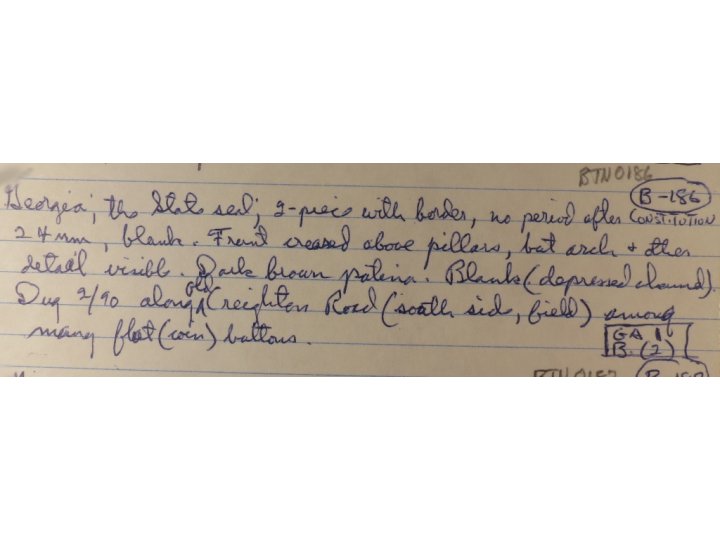 BTN0186
B-186
Georgia; the State seal; 2-piece with border, no period after CONSTITUTION
24mm, blank. Front creased above pillars, but arch + other
detail visible. Dark brown patina. Blank (depressed channel).
Dug 2/90 along Old Creighton Road (south side, field) among
many flat (coin) buttons.
GA 16
B. (2)
BTN0187